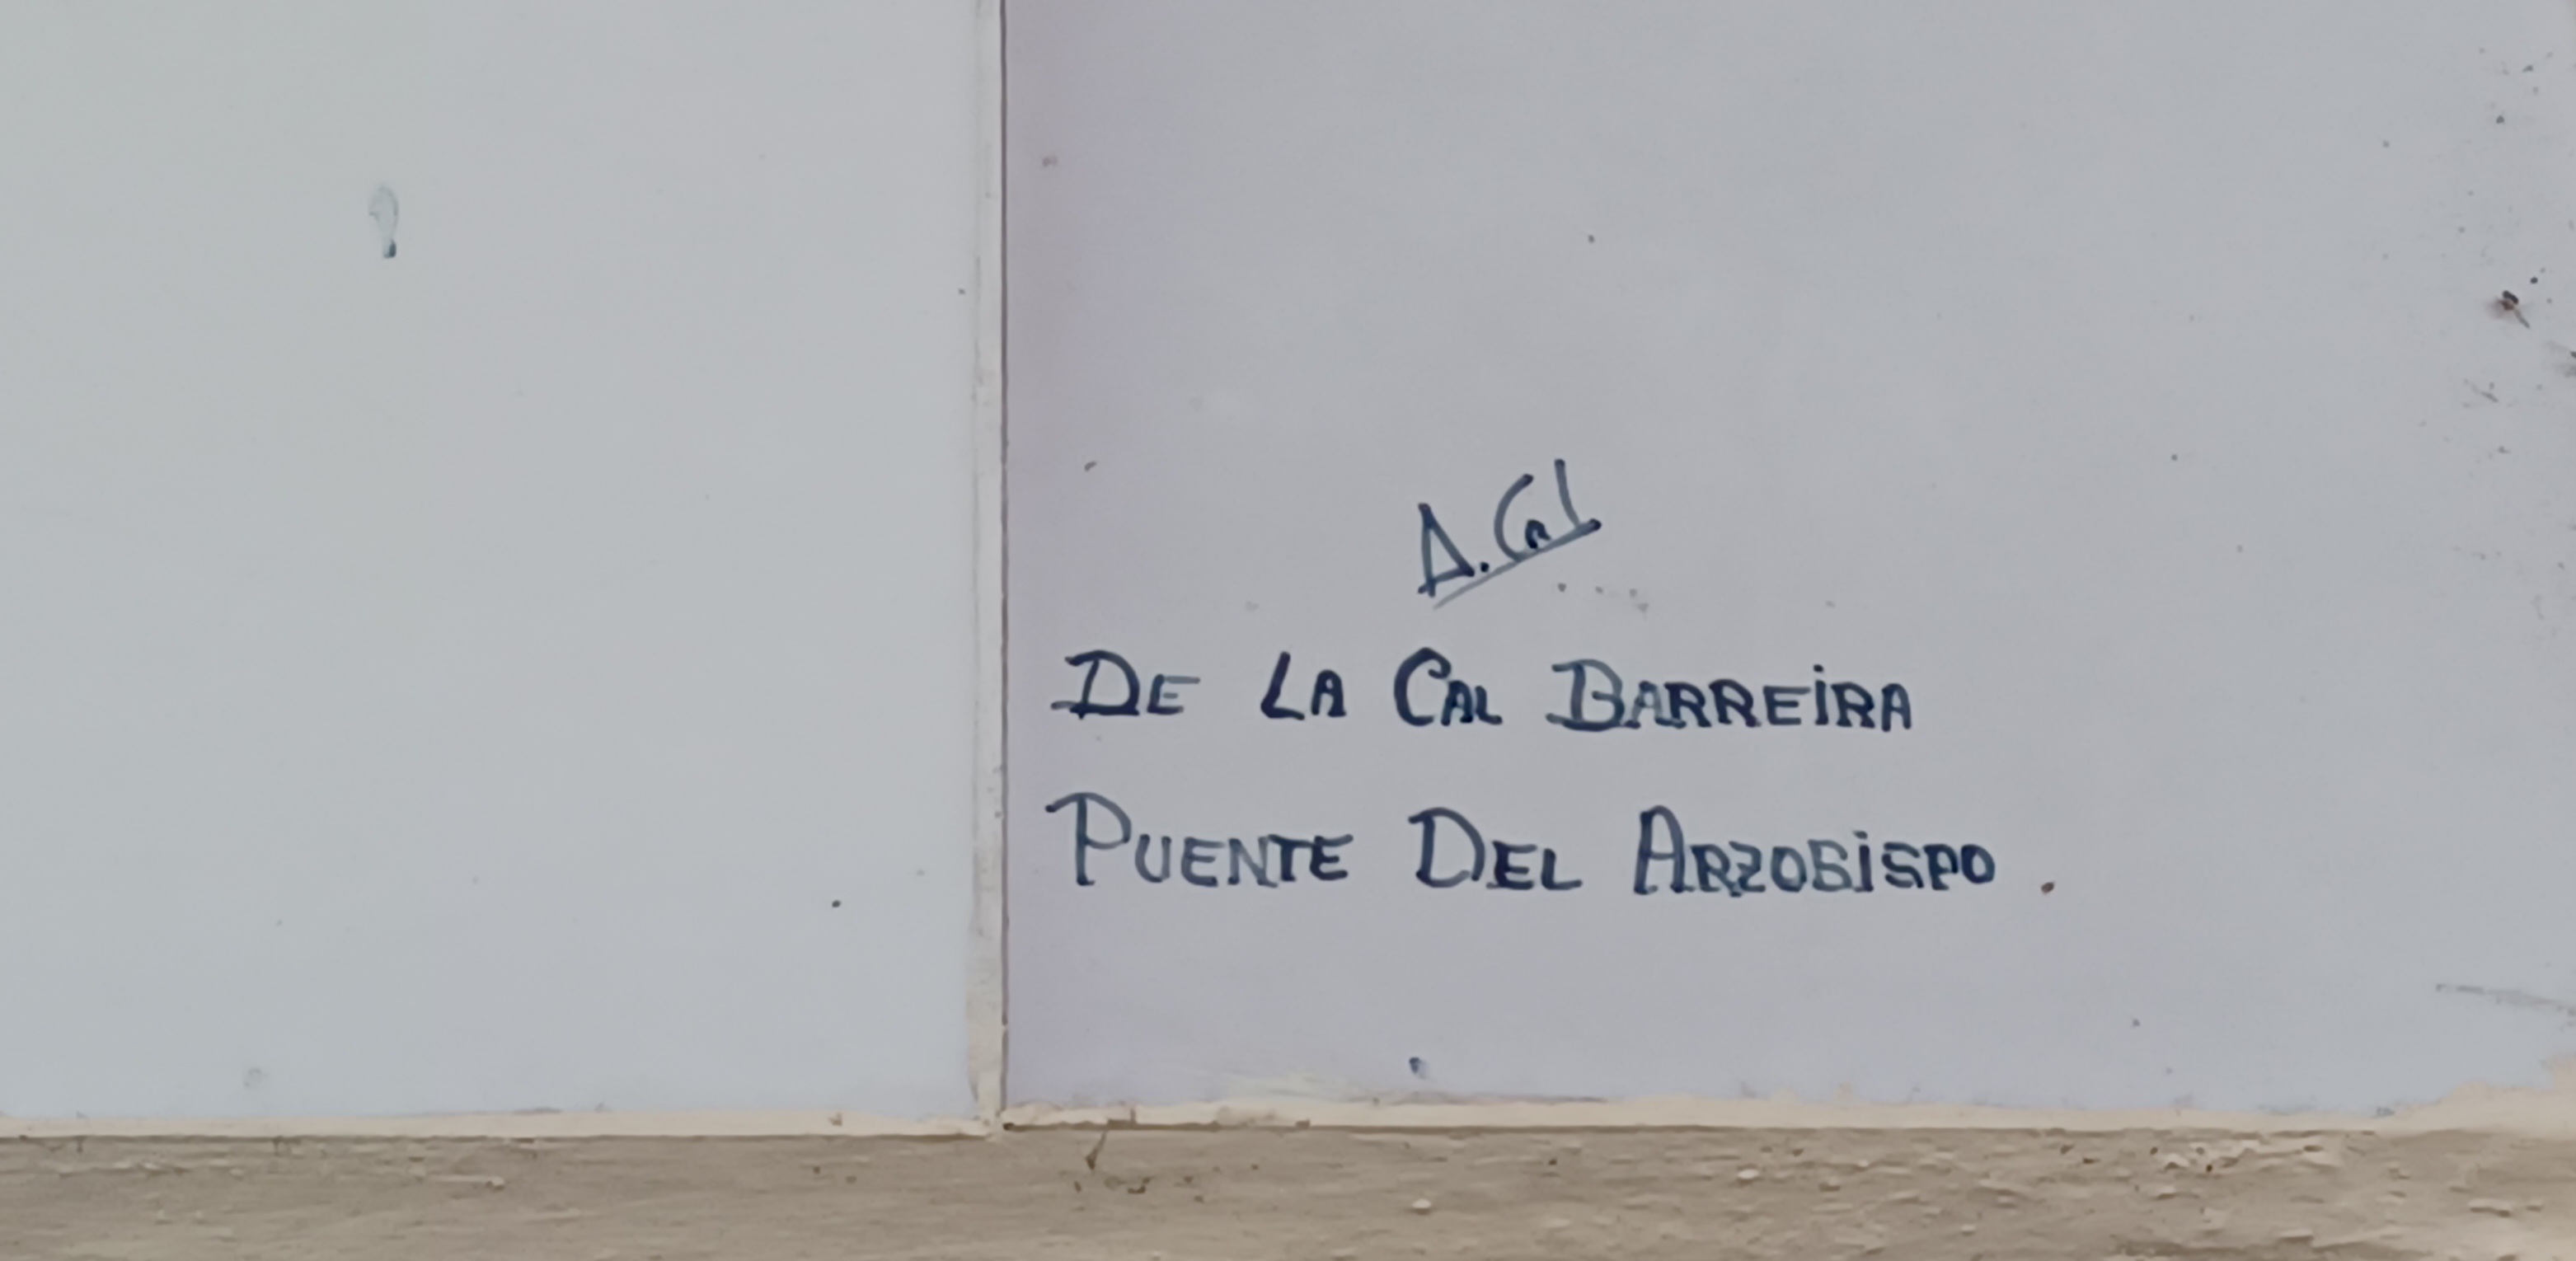 A. Cal
DE LA CAL BARREIRA
PUENTE DEL ARZOBISPO.